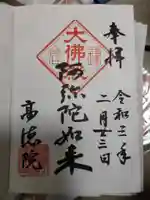 奉拝
令和三年
二月廿三日
大佛
阿弥陀如来
高徳院